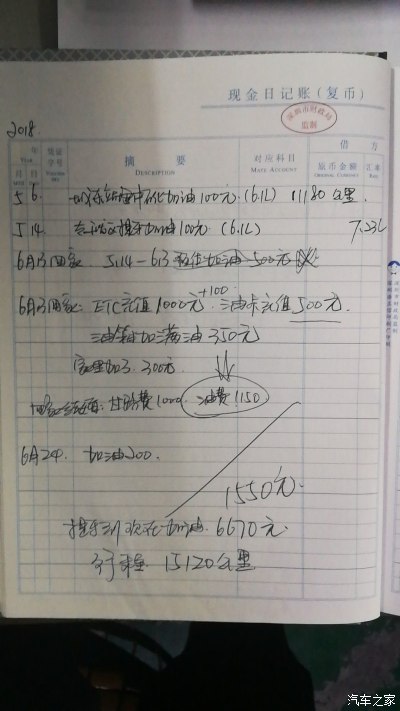 现金日记账（复币）
深圳市财政局
监制
2018
年
YEAR
凭证
字号
摘 要
DESCRIPTION
对应科目
MATE ACCOUNT
借 方
原币金额
ORIGINAL CURRENCY
汇率
月
日
5 6. 中石化加油100元.(6.1L) 11180公里.
5 14. 加油100元 (6.1L) 7.23L
6月13回家 5.14-6.13 加油500元
6月13回家: ETC充值1000元+100 油卡充值500元
油箱加满油350元
家里加了300元
过路费1000 油费1150
6月24. 加油200.
1550元.
提车到现在加油 6670元.
行程 15120公里
汽车之家